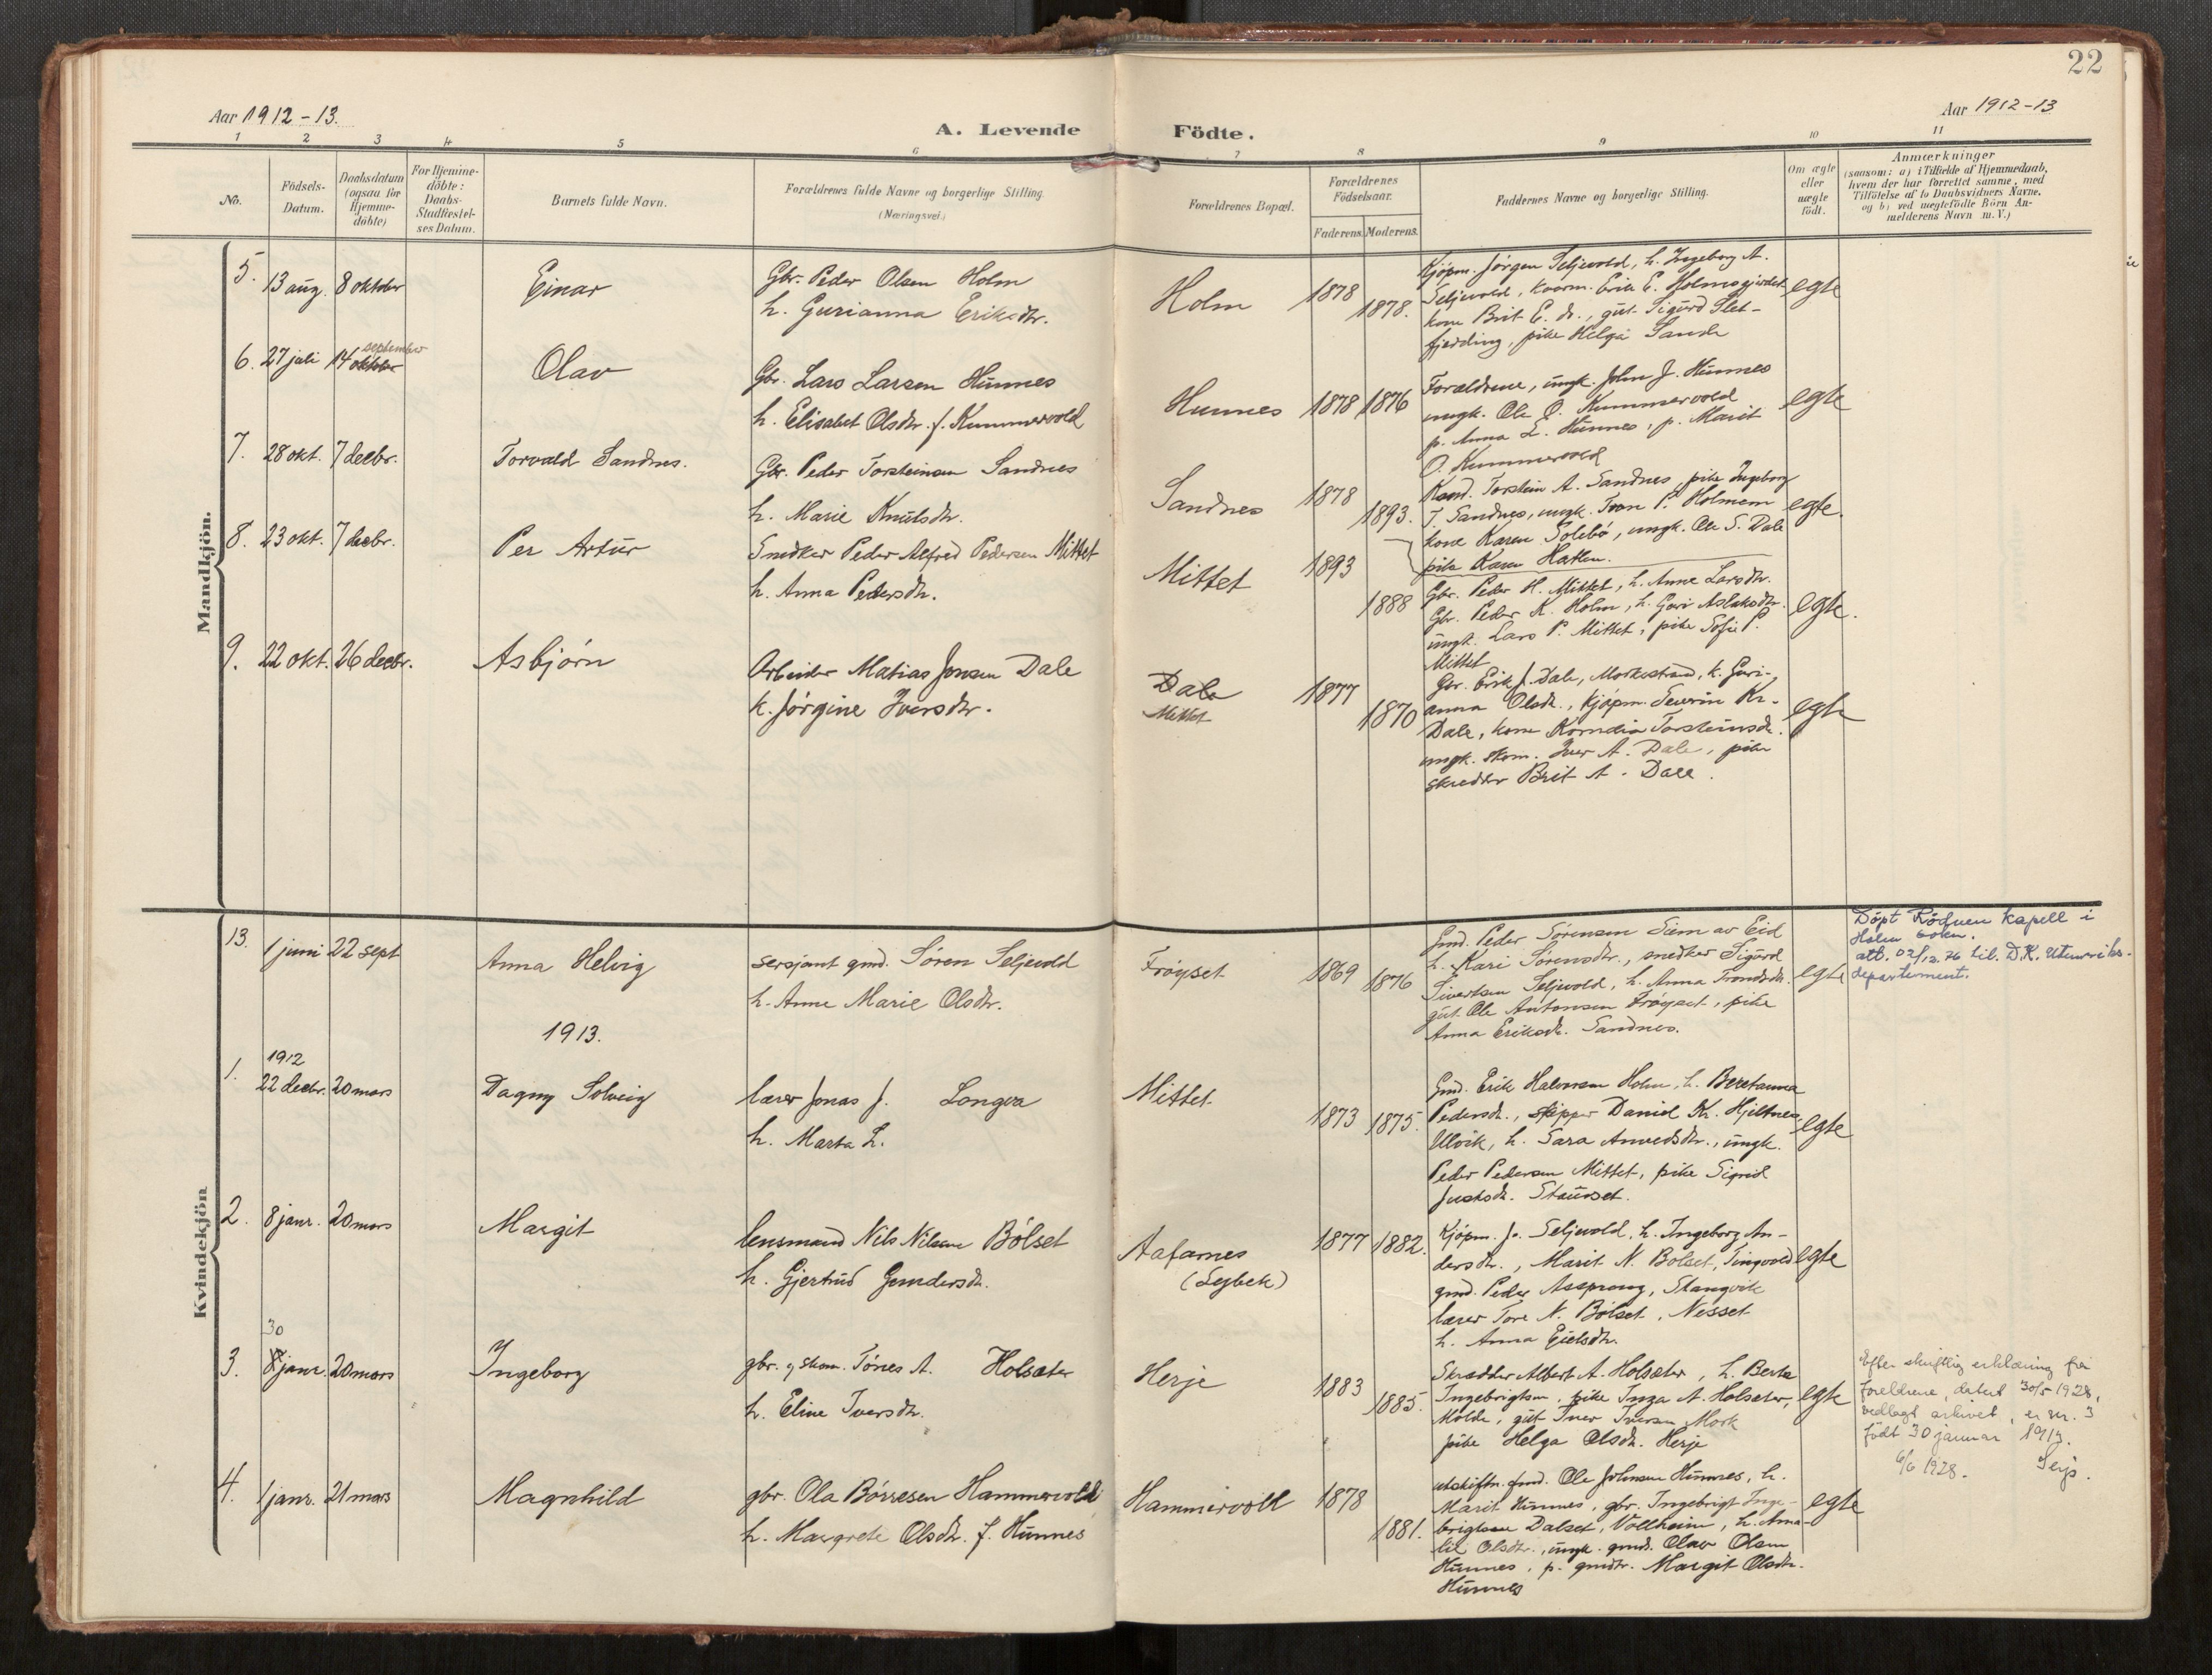 22
Aar 1912-13.
Aar 1912-13
A. Levende Födte.
1 2 3 4 5 6 7 8 9 10 11
No.
Födsels-
Datum.
Daabsdatum
(ogsaa for
Hjemme-
döbte)
For Hjemme-
döbte:
Daabs-
Stadfæstel-
ses Datum.
Barnets fulde Navn.
Forældrenes fulde Navne og borgerlige Stilling.
(Næringsvei.)
Forældrenes Bopæl.
Forældrenes
Födselsaar.
Faderens. Moderens.
Faddernes Navne og borgerlige Stilling.
Om ægte
eller
uægte
födt.
Anmærkninger
(saasom: a) i Tilfælde af Hjemmedaab,
hvem der har forrettet samme, med
Tilföielse af to Daabsvidners Navne,
og b) ved uægtefödte Börn An-
melderens Navn m. V.)
Mandkjön.
5. 13 aug. 8 oktober
Einar
Gbr. Peder Olsen Holm
h. Gurianna Eriksdtr.
Holm
1878
1878.
Kjøpm. Jørgen Seljevold, h. Ingeborg A.
Seljevold, Erik E. Holmsgjerdet
kone Brit E. dr., gut. Sigurd Slet-
fjerding, pike Helga Sande
egte
6. 27 juli 14 oktober september
Olav
Gbr. Lars Larsen Hunnes
h. Elisabet Olsdtr. f. Kummervold
Hunnes
1878 1876
Forældrene, ungk. John J. Hunnes
ungk. Ole O. Kummervold
p. Anna L. Hunnes, p. Marit
O. Kummervold
egte
7. 28 okt. 7 decbr.
Torvald Sandnes.
Gbr. Peder Torsteinsen Sandnes
h. Marie Knutsdtr.
Sandnes
1878
1893.
Kand. Torstein A. Sandnes, pike Ingeborg
T. Sandnes, ungk. Tron P. Holmem
kone Karen Solebø, ungk. Ole S. Dale
pike Karen Hatlen.
egte.
8. 23 okt. 7 decbr.
Per Artur
Snedker Peder Alfred Pedersen Mittet
h. Anna Pedersdtr.
Mittet
1893
1888
Gbr. Peder H. Mittet, h. Anne Larsdtr.
Gbr. Peder K. Holm, h. Guri Aslaksdtr.
ungk. Lars P. Mittet, pike Sofie P.
Mittet
egte.
9. 22 okt. 26 decbr.
Asbjørn
Arbeider Matias Jonsen Dale
k. Jørgine Iversdtr.
Dale
Mittet
1877
1870
Gbr. Erik J. Dale, Morkestrand, k. Guri-
anna Olsdtr., kjøpm. Severin Kr.
Dale, kone Kornelia Torsteinsdr.
ungk. skom. Iver A. Dale, pike
skredder Brit A. Dale.
egte
Kvindekjön
13. 1 juni 22 sept
Anna Helvig
sersjant gmd. Søren Seljevold
h. Anne Marie Olsdtr.
Frøyset
1869 1876
Gmd. Peder Sørensen Siem av Eid
h. Kari Sørensdtr., snedker Sigurd
Sivertsen Seljevold, h. Anna Trondsdtr.
gut. Ole Antonsen Frøyset, pike
Anna Eriksdtr. Sandnes.
egte
Døpt Rødven kapell i
Holm sokn.
att. 02/12.76 til D.K. Utenriks-
departement.
1913.
1. 1912
22 decbr. 20 mars
Dagny Solveig
lærer Jonas J. Longva
h. Marta L.
Mittet
1873 1875.
Gmd. Erik Halvorsen Holm, h. Beretanna
Pedersdtr., skipper Daniel Kr. Hjeltnes,
Ulvik, h. Sara Amundsdtr., ungk.
Peder Pedersen Mittet, pike Sigrid
Justsdtr. Staurset.
egte
2. 8 janr. 20 mars
Margit
lensmand Nils Nilsen Bølset
h. Gjertrud Gundersdtr.
Aafarnes
(Lybek)
1877 1882.
Kjøpm. J. Seljevold, h. Ingeborg An-
dersdtr., Marit N. Bølset, Tingvold
gmd. Peder Asprong, Stangvik
lærer Tore N. Bølset, Nesset
h. Anna Eielsdtr.
egte
3. 30
8 janr. 20 mars
Ingeborg
gbr. og skom. Tønes A. Holsæter
h. Eline Iversdtr.
Herje
1883
1885.
Skrædder Albert A. Holsæter, h. Berte
Ingebrigtsen, pike Inga A. Holsæter,
Molde, gut Iver Iversen Mork
pike Helga Olsdtr. Herje
egte
Efter skriftlig erklæring fra
foreldrene, datert 30/5 1928,
vedlagt arkivet, er nr. 3
født 30 januar 1913.
6/6 1928.
4. 1 janr. 21 mars
Magnhild
gbr. Ola Børresen Hammervold
h. Margrete Olsdtr. f. Hunnes
Hammervold
1878
1881.
utskiftn.fmd. Ole Johnsen Hunnes, h.
Marit Hunnes, gbr. Ingebrigt Inge-
brigtsen Dalset, Vollheim, h. Ama-
lie Olsdtr., ungk. gmds. Olav Olsen
Hunnes, p. gmdtr. Margit Olsdtr.
Hunnes
egte